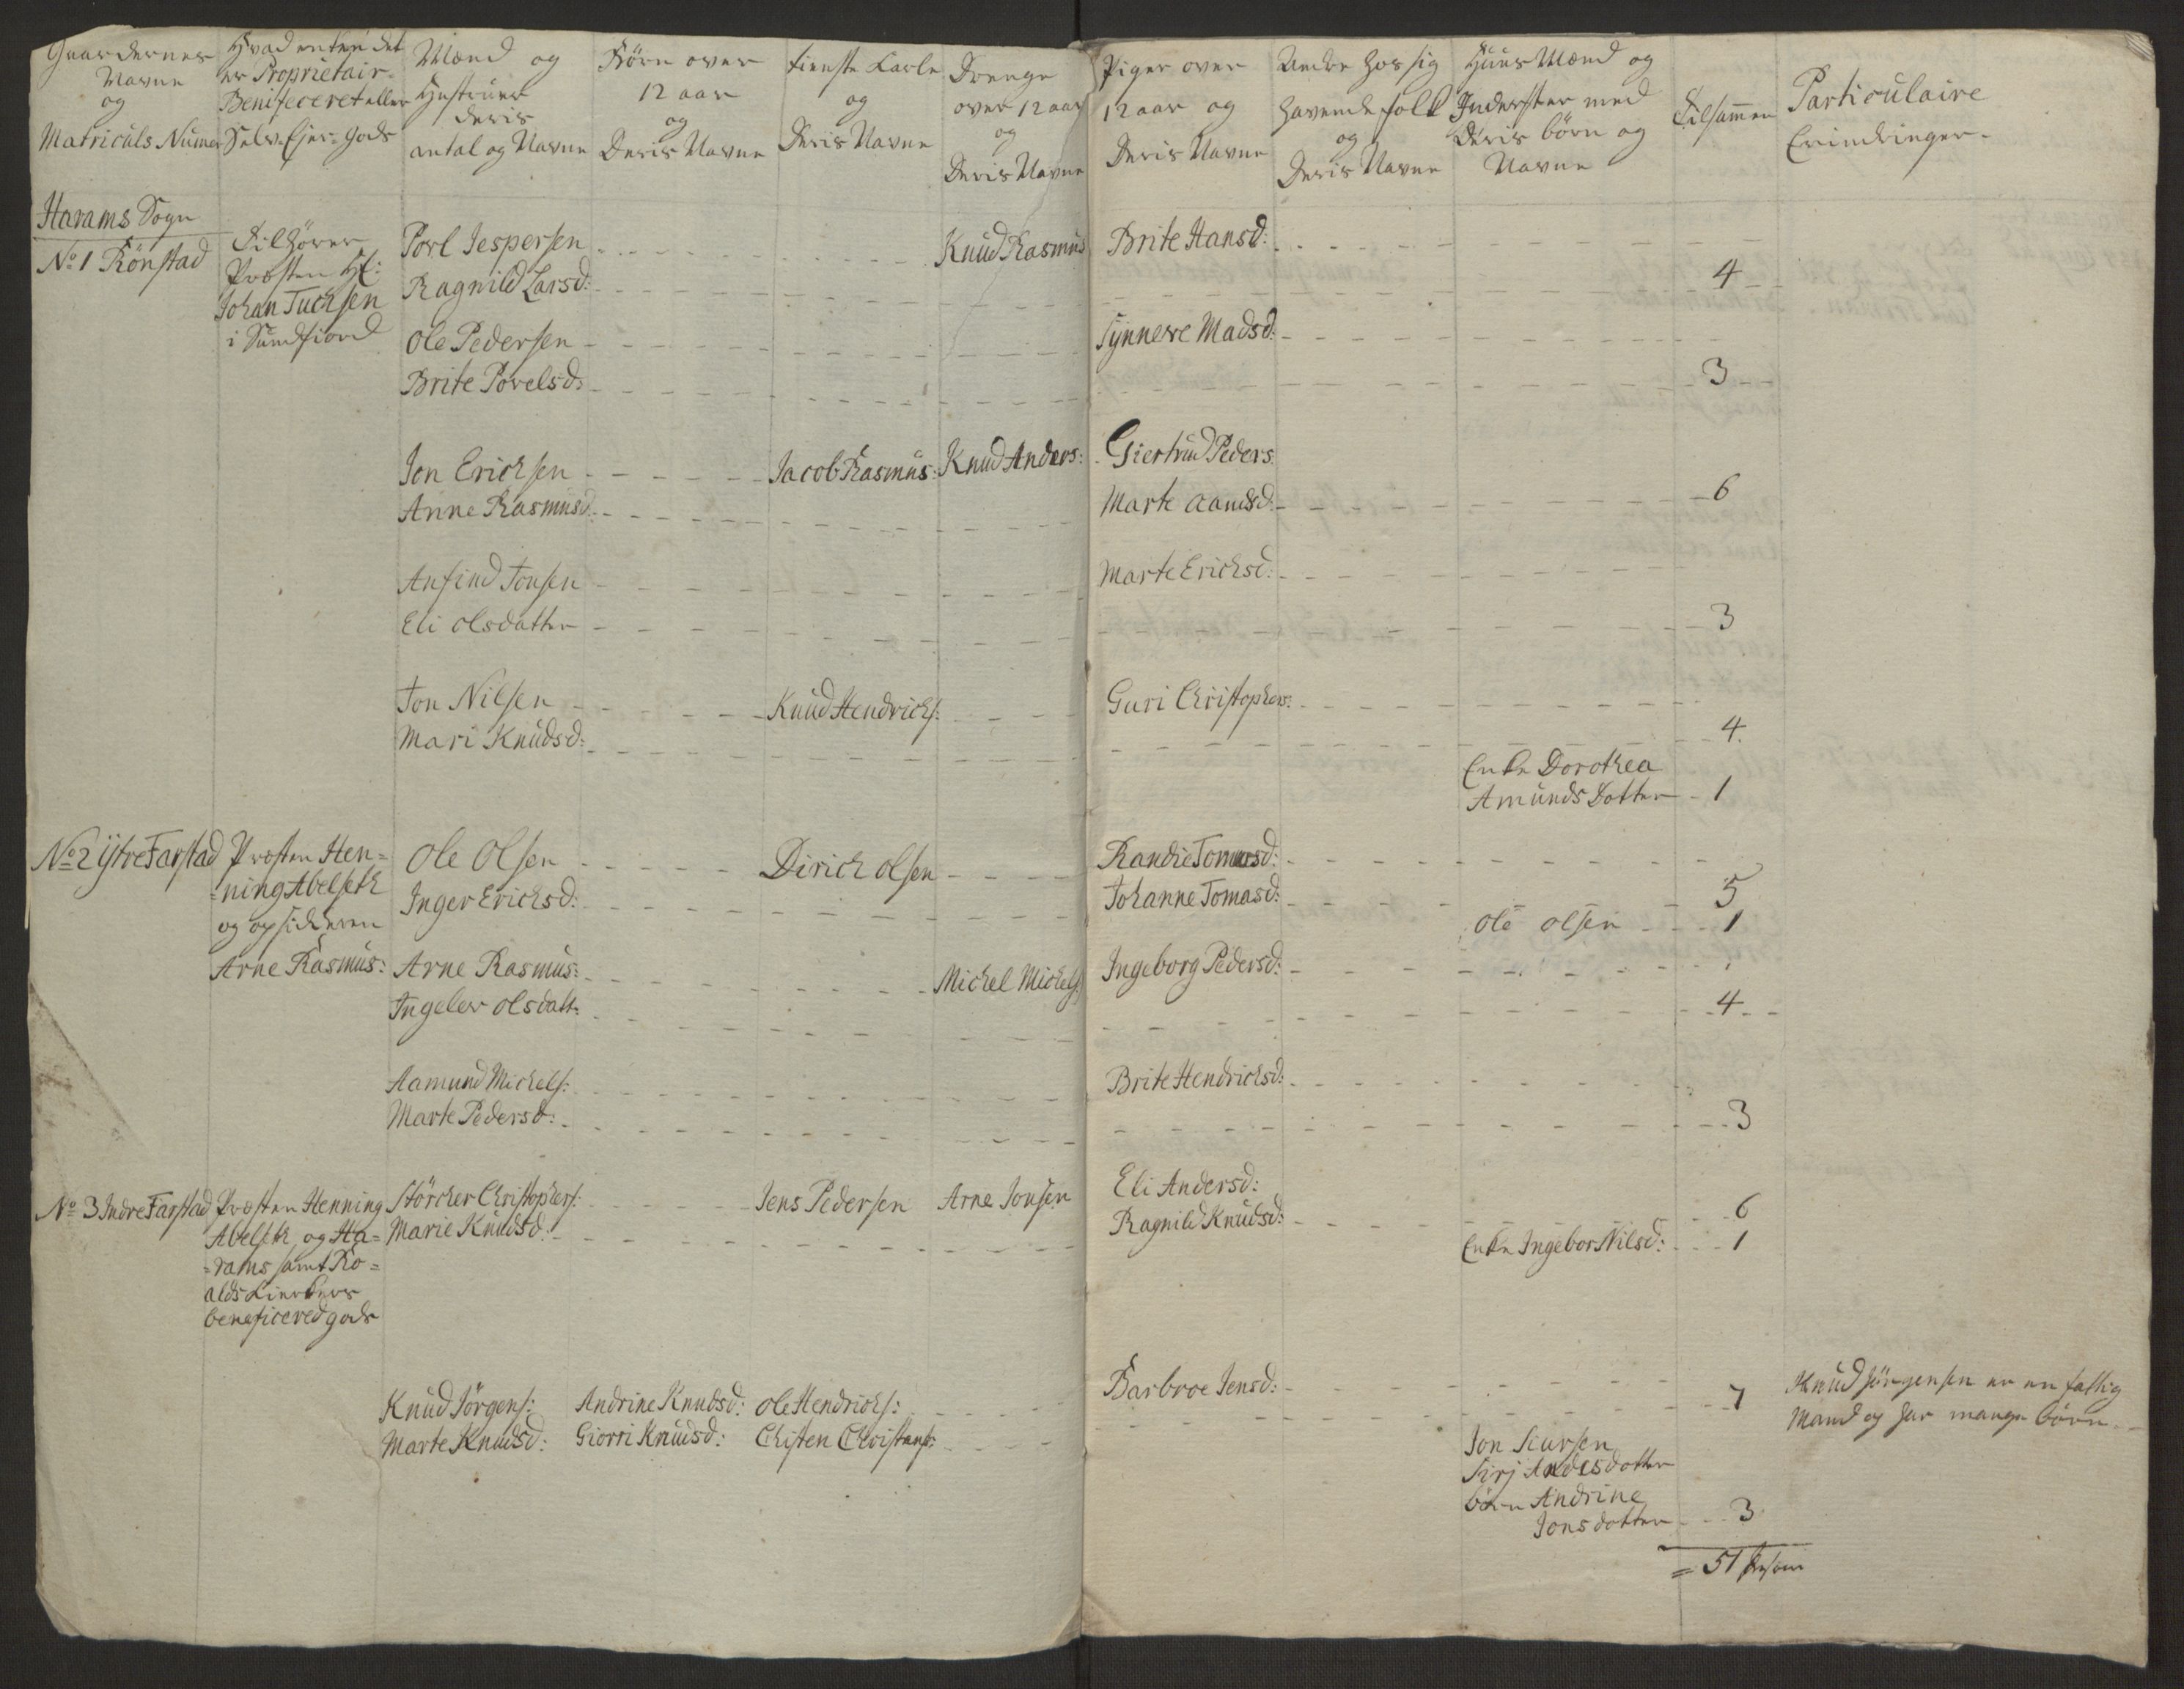 Gaardernes Navne og Matriculs Numer
Hvad enten det er Proprietair- Benificeret eller Selv-Ejer-gods
Mænd og Hustruer deris antal og Navne
Börn over 12 aar og Deris Navne
tieneste Karle og Deris Navne
Drenge over 12 aar og Deris Navne
Piger over 12 aar og Deris Navne
Andre hos sig havende folk og Deris Navne
Huus Mænd og Inderster med Deris börn og Navne
Tilsammen
Particulaire Erindringer.
Harams Sogn
No. 1 Rönstad
Tilhörer
Prosten Hr:
Johan Tuchsen
i Sundfiord
Povl Jespersen Knud Rasmus Brite Hansd:
Ragnild Larsd: 4
Ole Pedersen Synneve Madsd:
Brite Povelsd: 3
Jon Erichsen Jacob Rasmus: Knud Anders: Giertrud Peders
Anne Rasmusd: Marte Aamdsd: 6
Anfind Jonsen Marte Erichsd:
Eli Olsdatter 3
Jon Nilsen Knud Hendrichs: Guri Christophers:
Mari Knudsd: 4.
Enke Dorothea
Amunds Dotter 1
No. 2 Ytre Farstad Prosten Hen= Ole Olsen Dirich Olsen Randie Tomasd:
=ning Abelseth Inger Erichsd: Johanne Tomasd: 5
og opsideren Ole Olsen 1
Arne Rasmus: Arne Rasmus: Michel Michels: Ingeborg Pedersd:
Ingelev Olsdatt: 4
Aamund Michels: Brite Hendrichsd:
Marte Pedersd: 3
No. 3 Indre Farstad Prosten Henning Störcher Christophers: Jens Pedersen Arne Jonsen Eli Andersd:
Abelseth og Ha= Marie Knudsd: Ragnild Knudsd: 6
=rams samt Ro= Enke Ingebor Nilsd: 1
alds Kierkers
beneficered gods
Knud Jörgens: Andrine Knudsd: Ole Hendrichs: Barbroe Jensd: 7 Knud Jörgensen er en fattig
Marte Knudsd: Giorri Knudsd: Christen Christians: Mand og har mange börn.
Jon Siursen
Sirj Andersdotter
börn Andrine
Jonsdotter 3
= 51 Persone